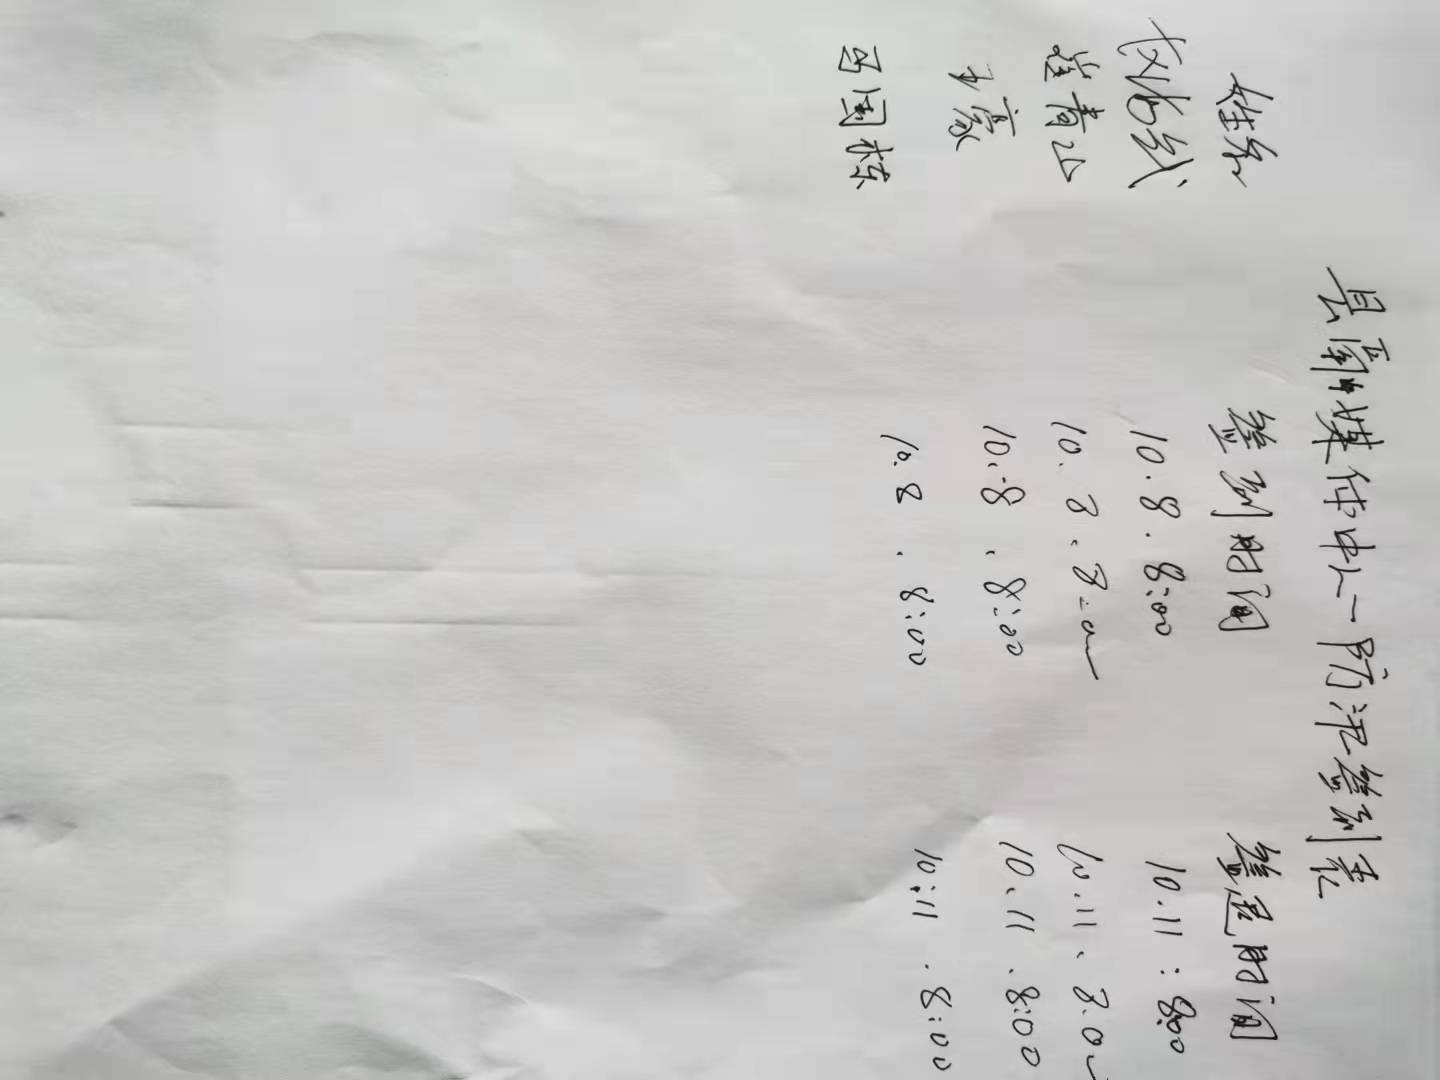 县融媒体中心防汛签到表
姓名 签到时间 签退时间
10.8.8:00 10.11:8:00
崔青山 10.8.8:00 10.11.8:00
王豪 10.8.8:00 10.11.8:00
马国栋 10.8.8:00 10:11.8:00